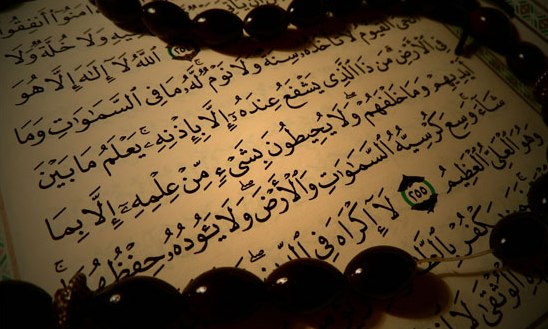 ءَامَنُوٓا۟ أَنفِقُوا۟
فِيهِ وَلَا خُلَّةٌ وَلَا
ٱللَّهُ لَآ إِلَٰهَ إِلَّا هُوَ
ٱلْقَيُّومُ لَا تَأْخُذُهُۥ سِنَةٌ وَلَا نَوْمٌ لَّهُۥ مَا فِى ٱلسَّمَٰوَٰتِ وَمَا
فِى ٱلْأَرْضِ مَن ذَا ٱلَّذِى يَشْفَعُ عِندَهُۥٓ إِلَّا بِإِذْنِهِۦ يَعْلَمُ مَا بَيْنَ
أَيْدِيهِمْ وَمَا خَلْفَهُمْ وَلَا يُحِيطُونَ بِشَىْءٍ مِّنْ عِلْمِهِۦٓ إِلَّا بِمَا
شَآءَ وَسِعَ كُرْسِيُّهُ ٱلسَّمَٰوَٰتِ وَٱلْأَرْضَ وَلَا يَـُٔودُهُۥ حِفْظُهُمَا
وَهُوَ ٱلْعَلِىُّ ٱلْعَظِيمُ ٢٥٥ لَآ إِكْرَاهَ فِى ٱلدِّينِ
يَكْفُرْ بِٱلطَّٰغُوتِ
ٱلْوُثْقَىٰ لَا